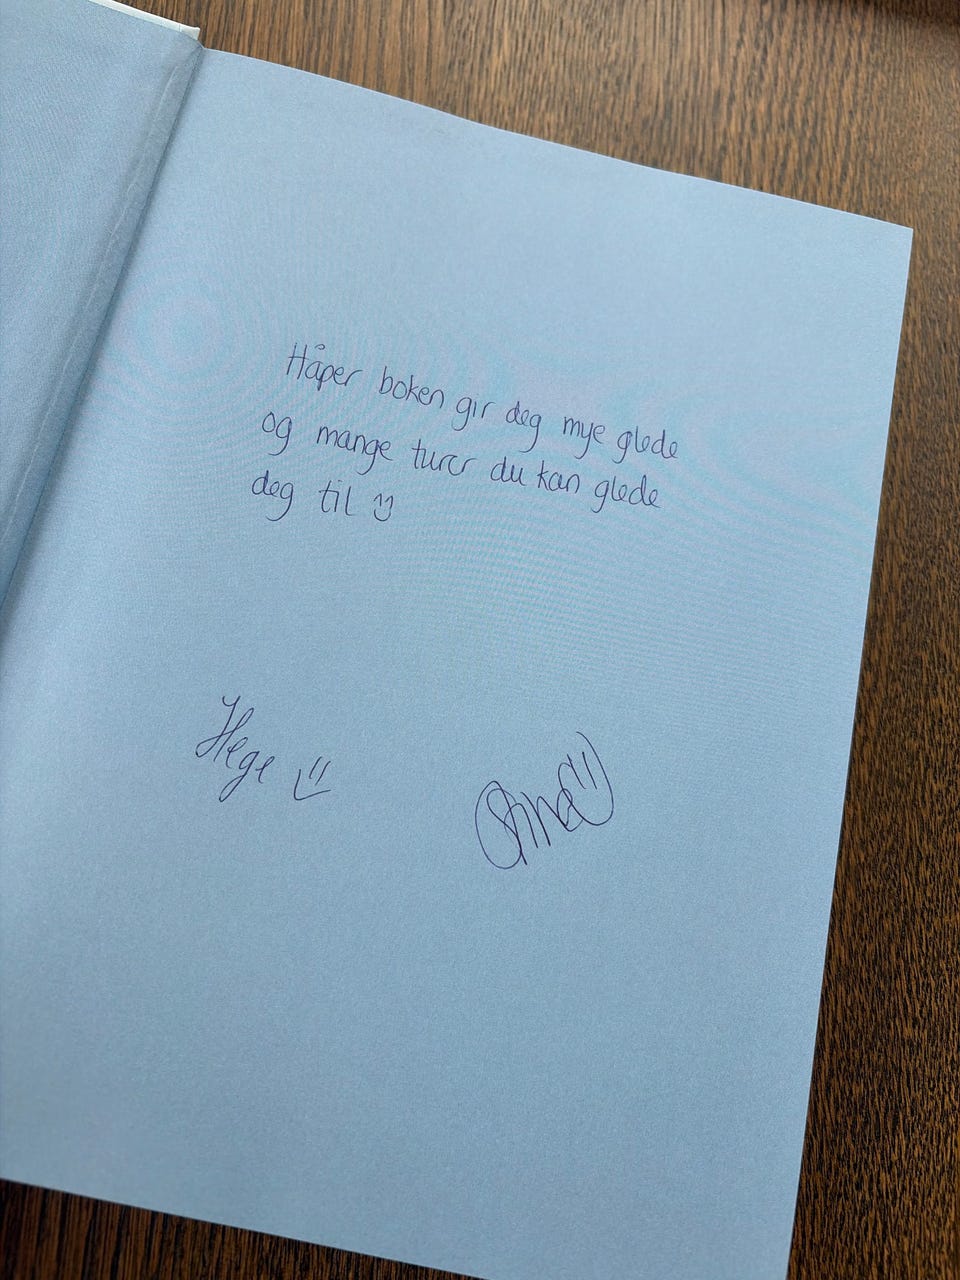 Håper boken gir deg mye glede
og mange turer du kan glede
deg til
Hege